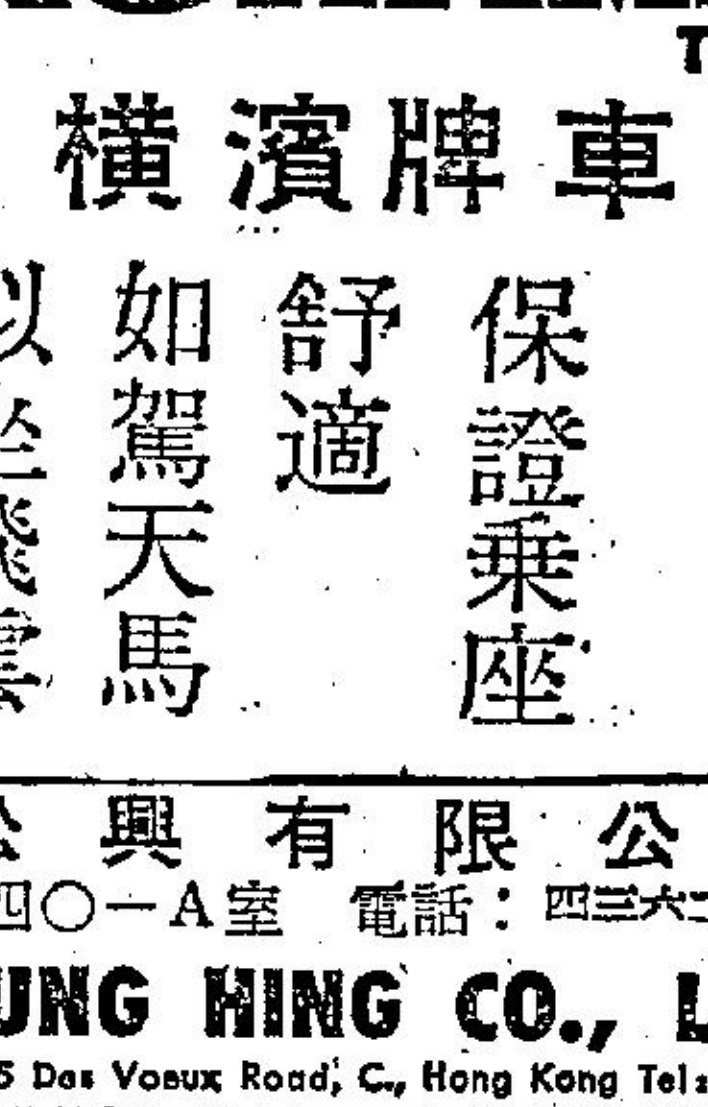 橫濱牌車
保證乗座
舒適
如駕天馬
公興有限公
四〇一A室 電話：四三六二
UNG HING CO., L
5 Des Voeux Road, C., Hong Kong Tel: